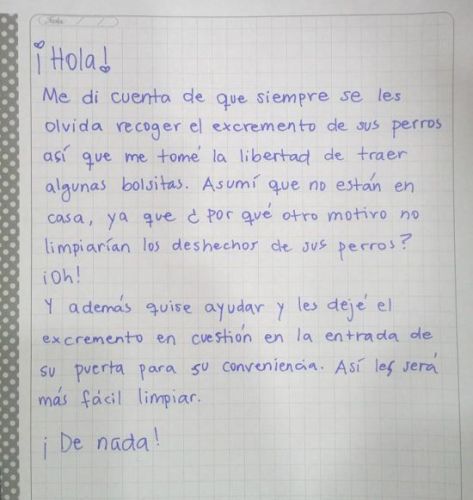 ¡Hola!
Me di cuenta de que siempre se les
olvida recoger el excremento de sus perros
así que me tomé la libertad de traer
algunas bolsitas. Asumí que no están en
casa, ya que ¿por qué otro motivo no
limpiarían los deshechos de sus perros?
¡Oh!
Y además quise ayudar y les dejé el
excremento en cuestión en la entrada de
su puerta para su conveniencia. Así les será
más fácil limpiar.
¡De nada!